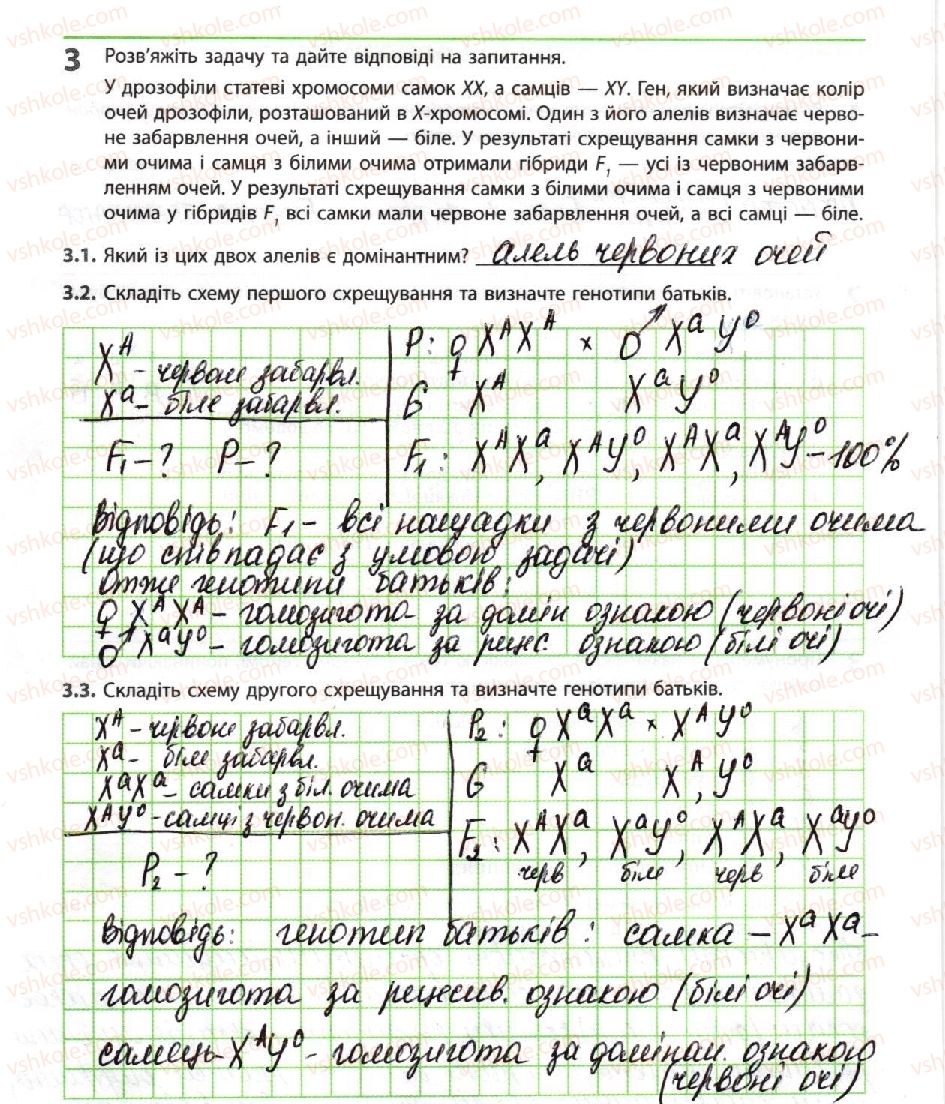 3 Розв'яжіть задачу та дайте відповіді на запитання.
У дрозофіли статеві хромосоми самок XX, а самців — XY. Ген, який визначає колір
очей дрозофіли, розташований в X-хромосомі. Один з його алелів визначає черво-
не забарвлення очей, а інший — біле. У результаті схрещування самки з червони-
ми очима і самця з білими очима отримали гібриди F₁ — усі із червоним забарв-
ленням очей. У результаті схрещування самки з білими очима і самця з червоними
очима у гібридів F₁ всі самки мали червоне забарвлення очей, а всі самці — біле.
3.1. Який із цих двох алелів є домінантним? алель червоних очей
3.2. Складіть схему першого схрещування та визначте генотипи батьків.
Xᴬ – червоне забарвл.
Xᵃ – біле забарвл.
F₁ – ? P – ?
P: ♀ XᴬXᴬ × ♂ XᵃY⁰
G Xᴬ XᵃY⁰
F₁: XᴬXᵃ, XᴬY⁰, XᴬXᵃ, XᴬY⁰ – 100%
Відповідь: F₁ – всі нащадки з червоними очима
(що співпадає з умовою задачі)
Отже генотипи батьків:
♀ XᴬXᴬ – гомозигота за домін ознакою (червоні очі)
♂ XᵃY⁰ – гомозигота за рецес. ознакою (білі очі)
3.3. Складіть схему другого схрещування та визначте генотипи батьків.
Xᴬ – червоне забарвл.
Xᵃ – біле забарвл.
XᵃXᵃ – самки з біл. очима
XᴬY⁰ – самці з червон. очима
P₂ – ?
P₂: ♀ XᵃXᵃ × XᴬY⁰
G Xᵃ Xᴬ, Y⁰
F₂: XᴬXᵃ, XᵃY⁰, XᴬXᵃ, XᵃY⁰
черв біле черв біле
Відповідь: генотип батьків: самка – XᵃXᵃ –
гомозигота за рецесив. ознакою (білі очі)
самець – XᴬY⁰ – гомозигота за домінан. ознакою
(червоні очі)
vshkole.com